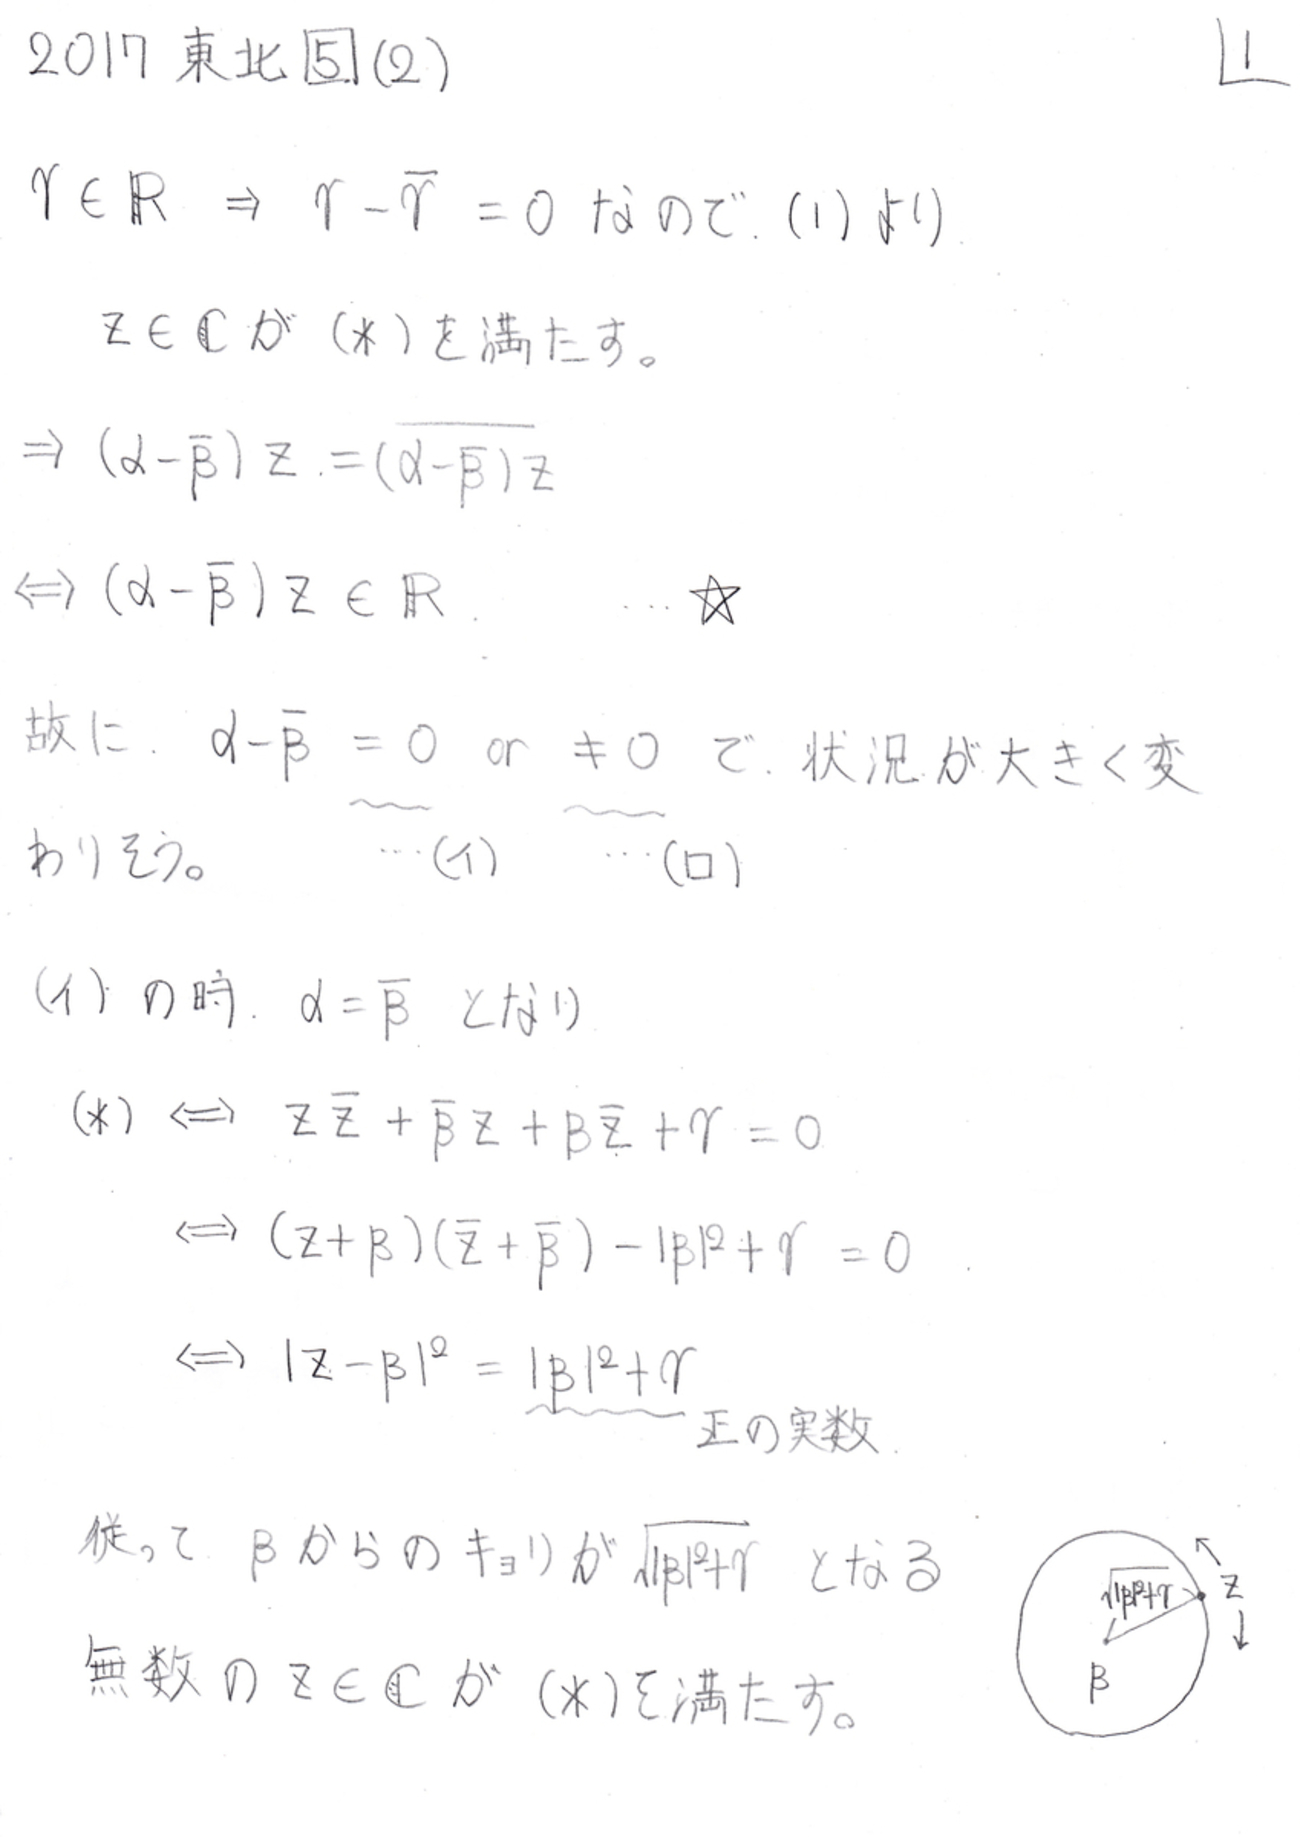 2017 東北 5 (2)
1
γ∈ℝ ⇒ γ-γ̄ = 0 なので. (1)より
z∈ℂが (*)を満たす。
⇒ (α-β̄)z = \overline{(α-β̄)z}
⇔ (α-β̄)z ∈ℝ. …☆
故に. α-β̄ = 0 or ≠0 で. 状況が大きく変
わりそう。 …(イ) …(ロ)
(イ)の時. α=β̄ となり
(*) ⇔ zz̄+β̄z+βz̄+γ=0
⇔ (z+β)(z̄+β̄)-|β|²+γ=0
⇔ |z-β|² = |β|²+γ
正の実数.
従って βからのキョリが√(|β|²+γ) となる
無数のz∈ℂが (*)を満たす。
√(|β|²+γ)
z
β